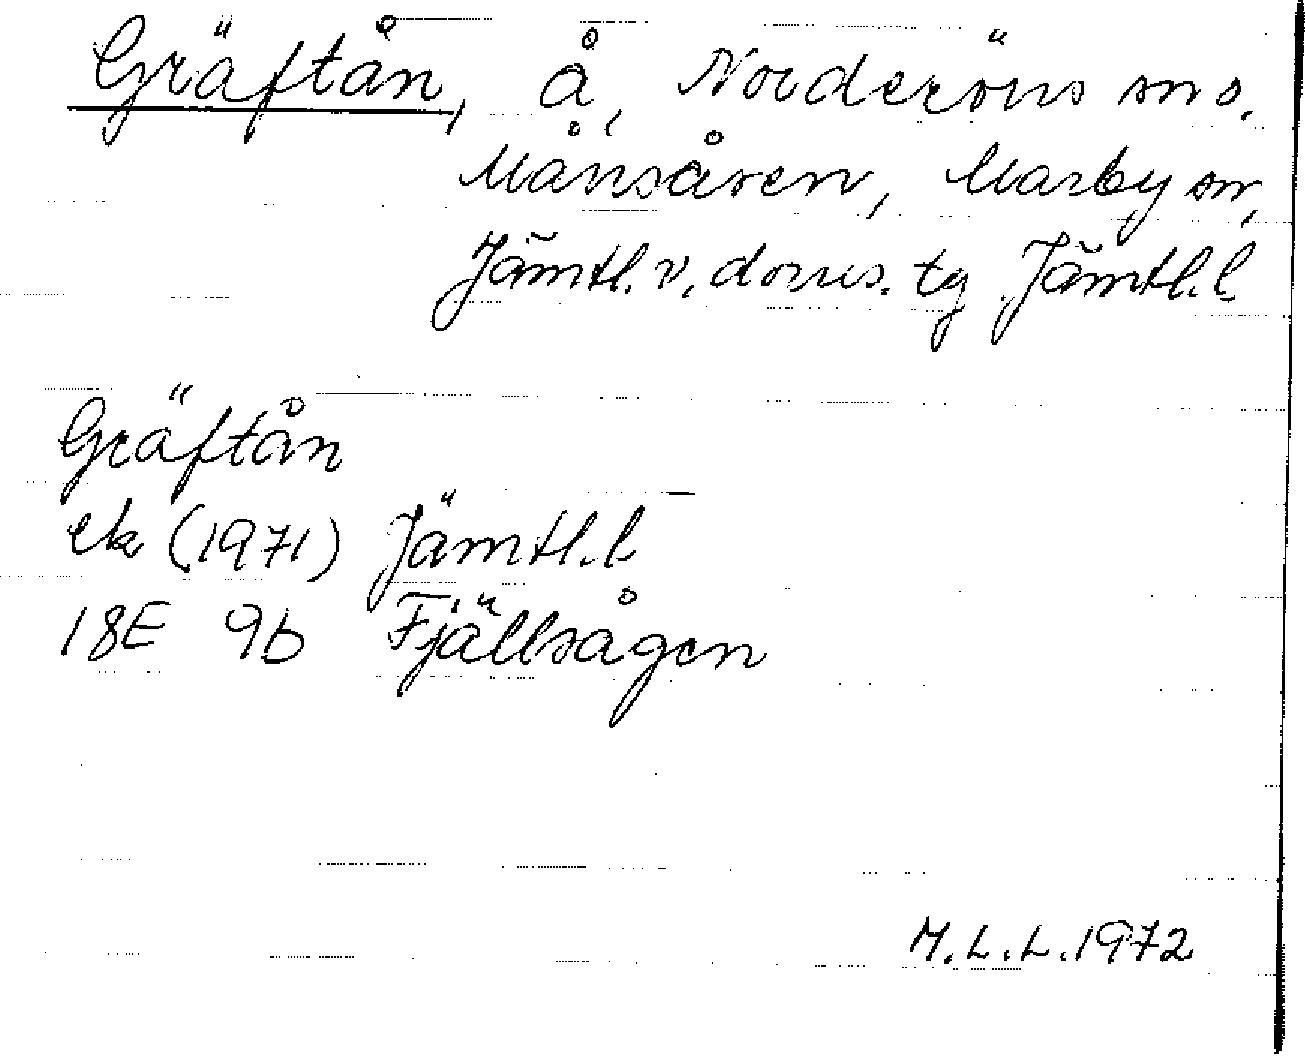 Gräftån, å, Norderöns sns.
Månsåsen, Marby sn,
Jämtl. v. doms. tg Jämtl. l.
Gräftån
ek (1971) Jämtl. l.
18E 9b Fjällsågen
M.L.L. 1972